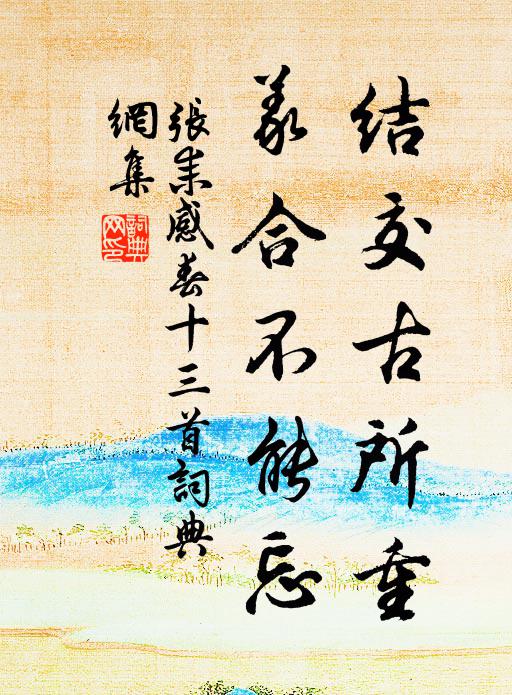 結交古所重
義合不能忘
張耒感春十三首詞典
網集
詞典網印